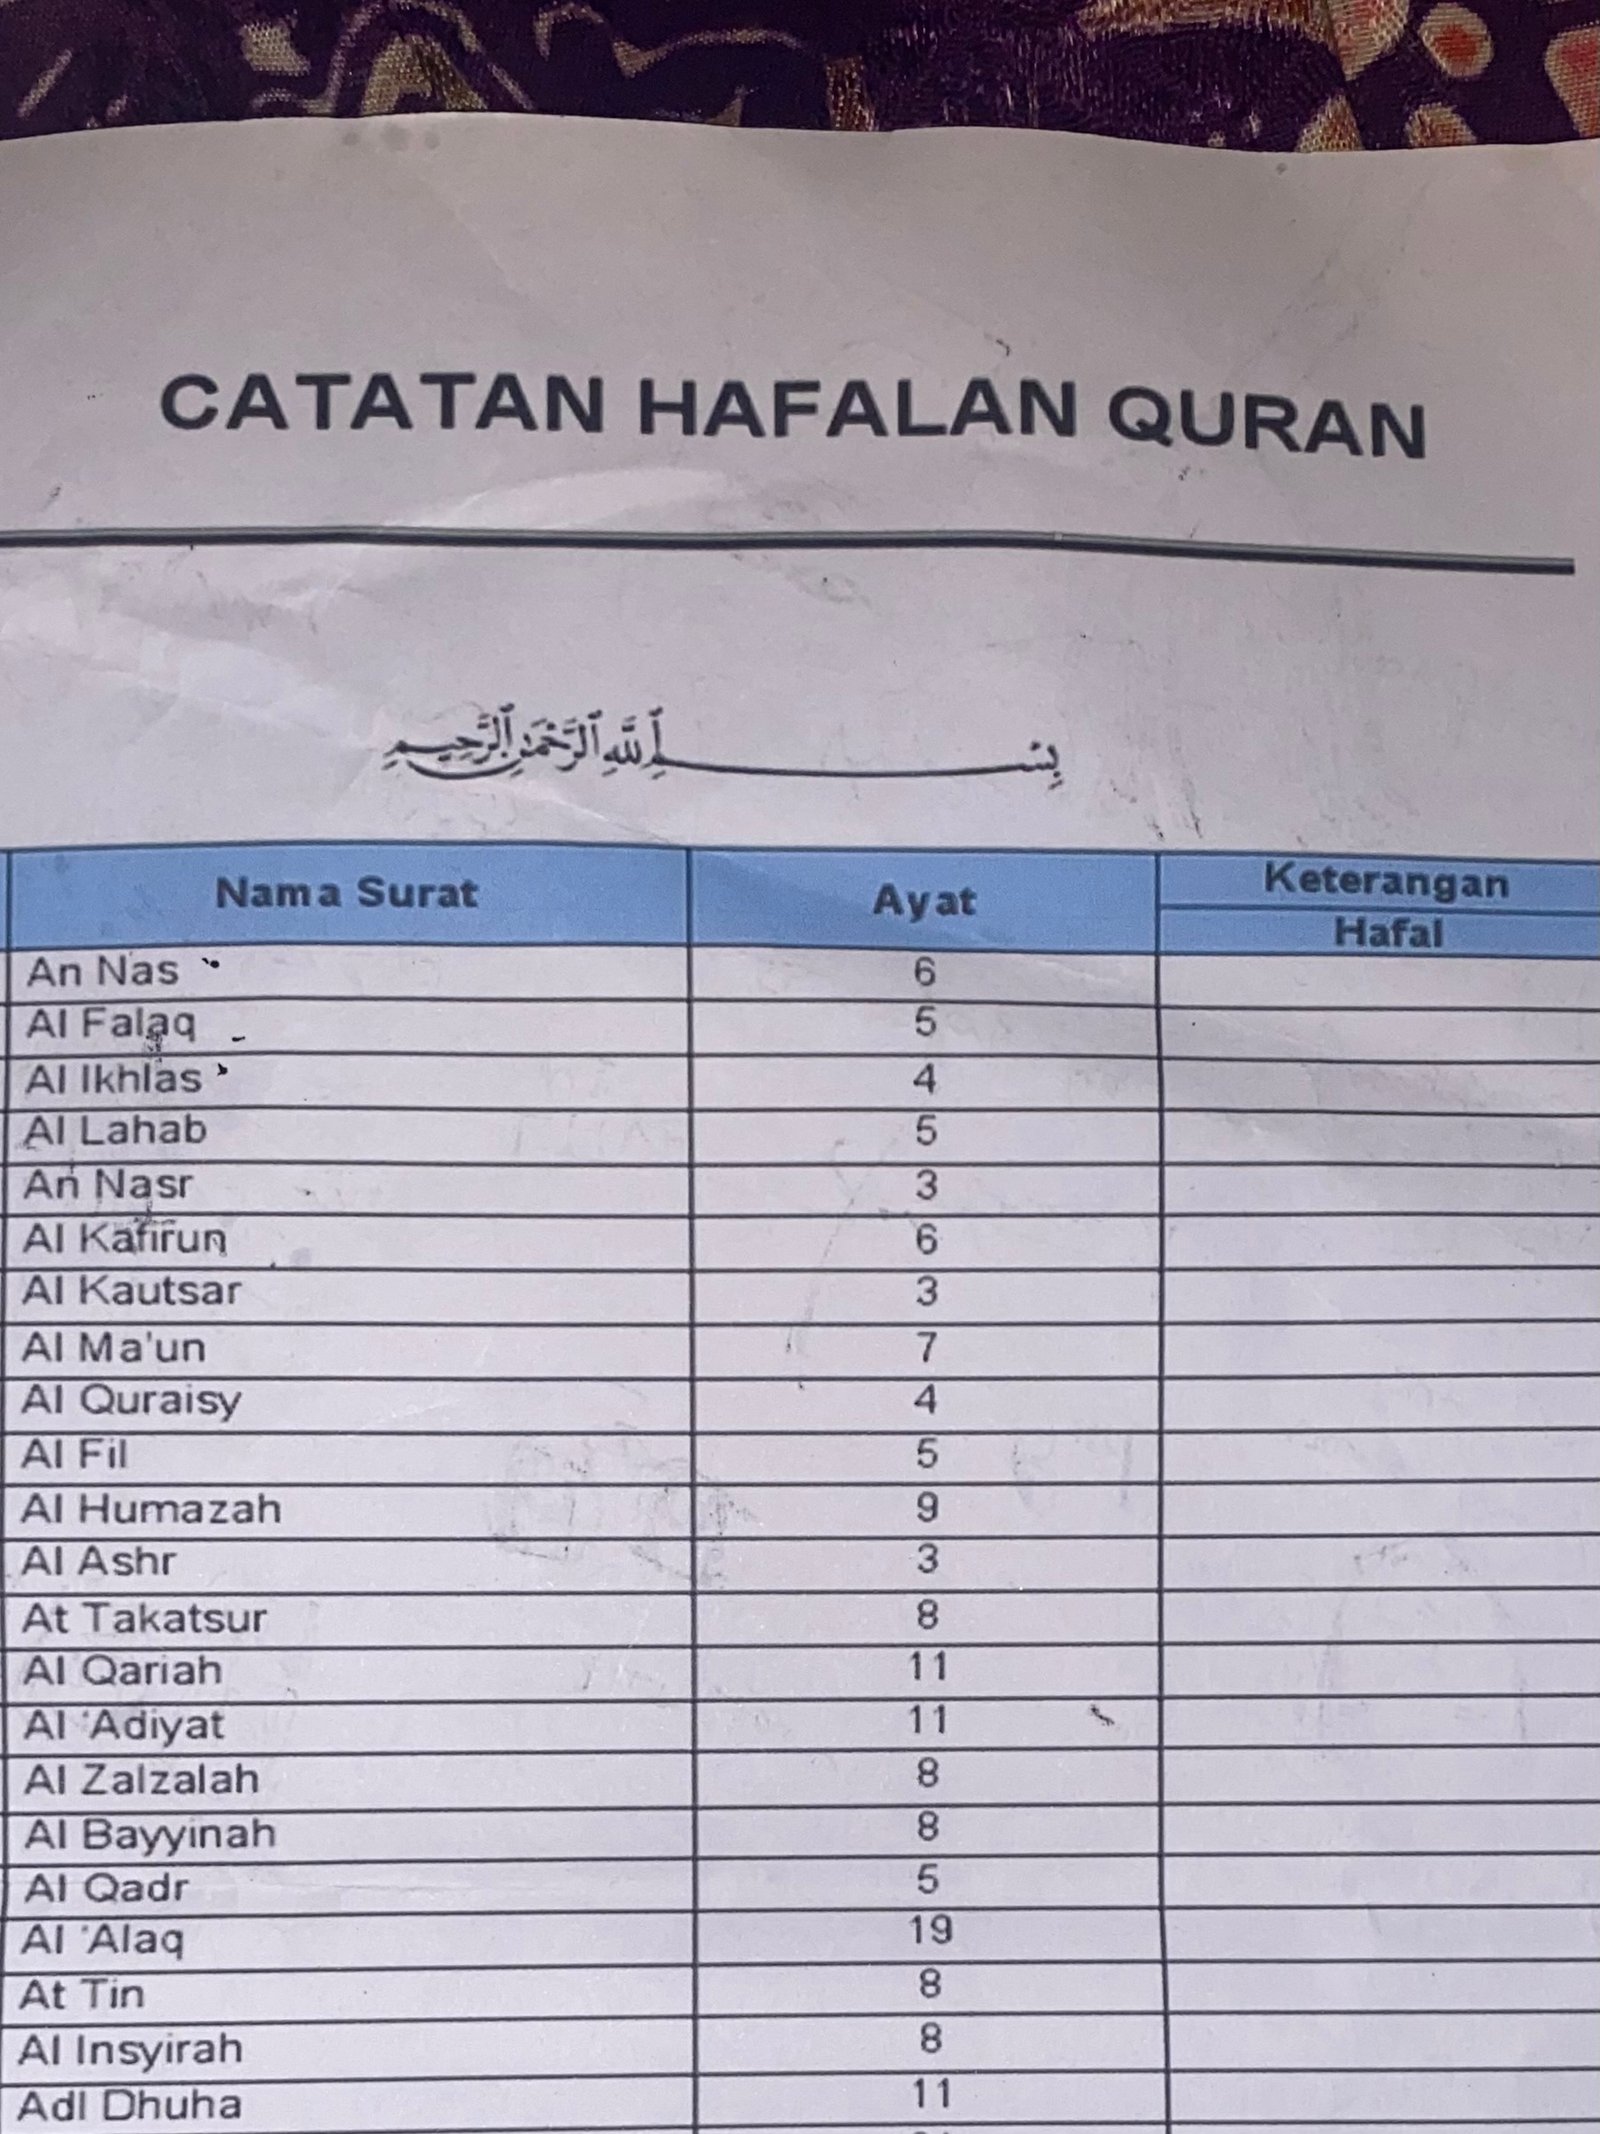 CATATAN HAFALAN QURAN
بِسْمِ ٱللَّهِ ٱلرَّحْمَٰنِ ٱلرَّحِيمِ
Nama Surat Ayat Keterangan
Hafal
An Nas 6
Al Falaq 5
Al Ikhlas 4
Al Lahab 5
An Nasr 3
Al Kafirun 6
Al Kautsar 3
Al Ma'un 7
Al Quraisy 4
Al Fil 5
Al Humazah 9
Al Ashr 3
At Takatsur 8
Al Qariah 11
Al 'Adiyat 11
Al Zalzalah 8
Al Bayyinah 8
Al Qadr 5
Al 'Alaq 19
At Tin 8
Al Insyirah 8
Adl Dhuha 11